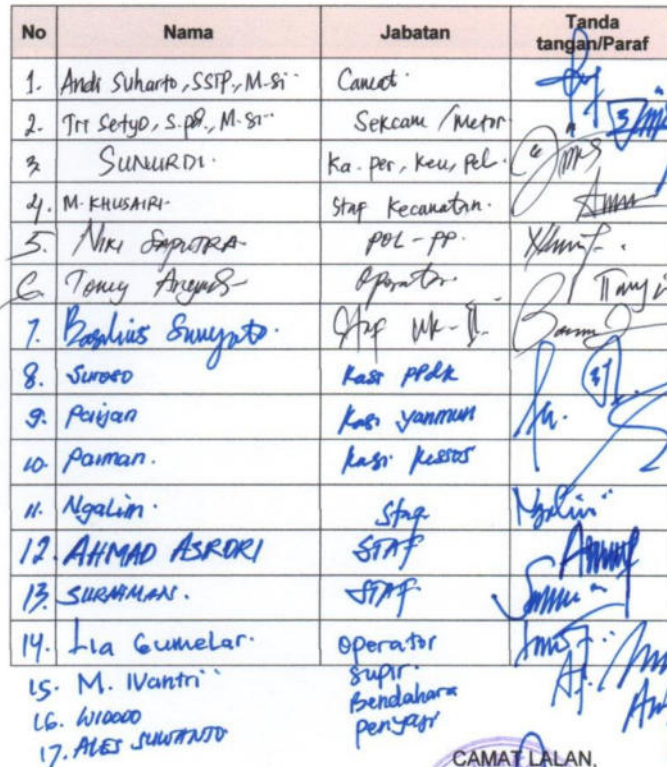 No Nama Jabatan Tanda tangan/Paraf
1. Andi Suharto, SSTP., M.Si Camat
2. Tri Setyo, S.pd., M.Si Sekcam /
3. SUNURDI. Ka. per, keu, pel.
4. M. KHUSAIRI Staf Kecamatan.
5. NIKI SAPUTRA POL-PP.
6. Tomy Operator
7. Basilius Sunyoto. Staf
8. Suroso Kasi PPdk
9. Parjan Kasi yanmum
10. Paiman. Kasi Kessos
11. Ngalim. Staf Ngalim
12. AHMAD ASRORI STAF
13. SURAHMAN. STAF
14. Lia Gumelar. Operator
15. M. IVantri Supir.
16. WIDODO Bendahara
17. ALES SUWANTO Penyaji
CAMAT LALAN,